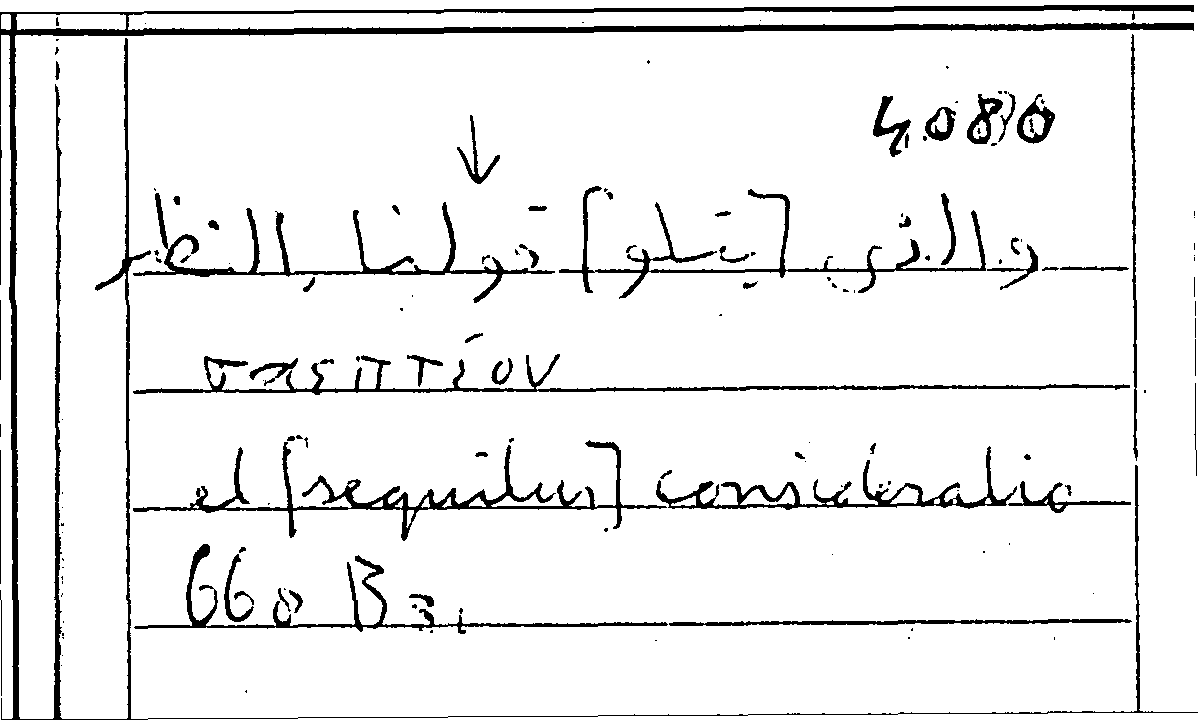 4080
↓
والذى [يتلو] قولنا النظر
σκεπτέον
et [sequitur] consideratio
660 B 31